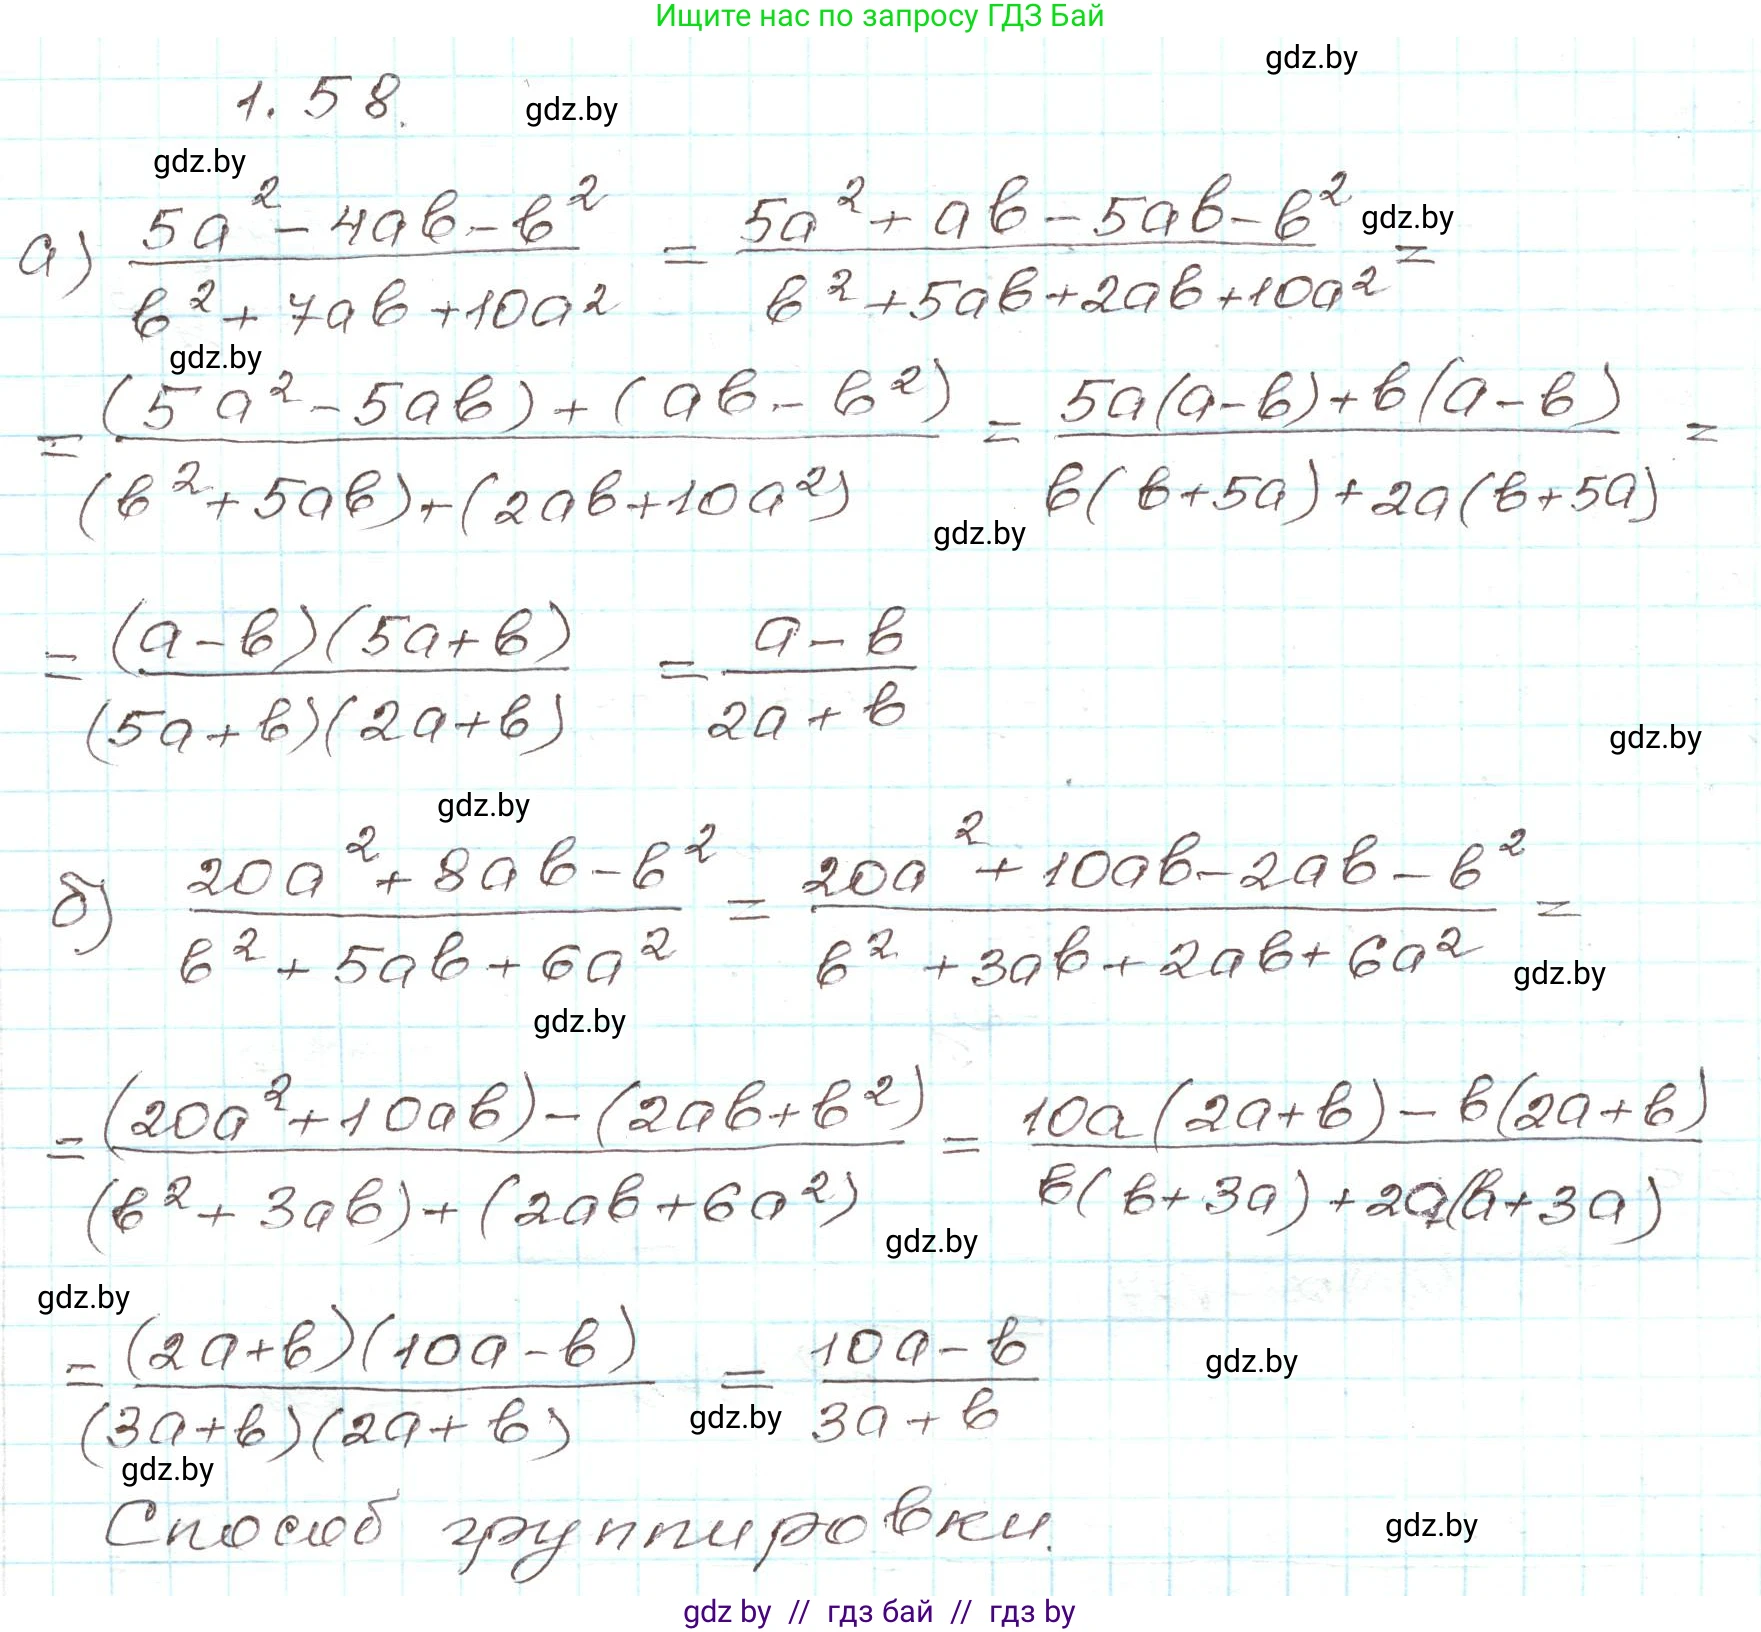 Ищите нас по запросу ГДЗ Бай
gdz.by
1.58.
gdz.by
gdz.by
а) (5a² - 4ab - b²)/(b² + 7ab + 10a²) = (5a² + ab - 5ab - b²)/(b² + 5ab + 2ab + 10a²) =
gdz.by
gdz.by
= ((5a² - 5ab) + (ab - b²))/((b² + 5ab) + (2ab + 10a²)) = (5a(a - b) + b(a - b))/(b(b + 5a) + 2a(b + 5a)) =
gdz.by
= ((a - b)(5a + b))/((5a + b)(2a + b)) = (a - b)/(2a + b)
gdz.by
gdz.by
б) (20a² + 8ab - b²)/(b² + 5ab + 6a²) = (20a² + 10ab - 2ab - b²)/(b² + 3ab + 2ab + 6a²) =
gdz.by
gdz.by
= ((20a² + 10ab) - (2ab + b²))/((b² + 3ab) + (2ab + 6a²)) = (10a(2a + b) - b(2a + b))/(b(b + 3a) + 2a(b + 3a))
gdz.by
gdz.by
= ((2a + b)(10a - b))/((3a + b)(2a + b)) = (10a - b)/(3a + b)
gdz.by
gdz.by
gdz.by
Способ группировки.
gdz.by
gdz by // гдз бай // гдз by